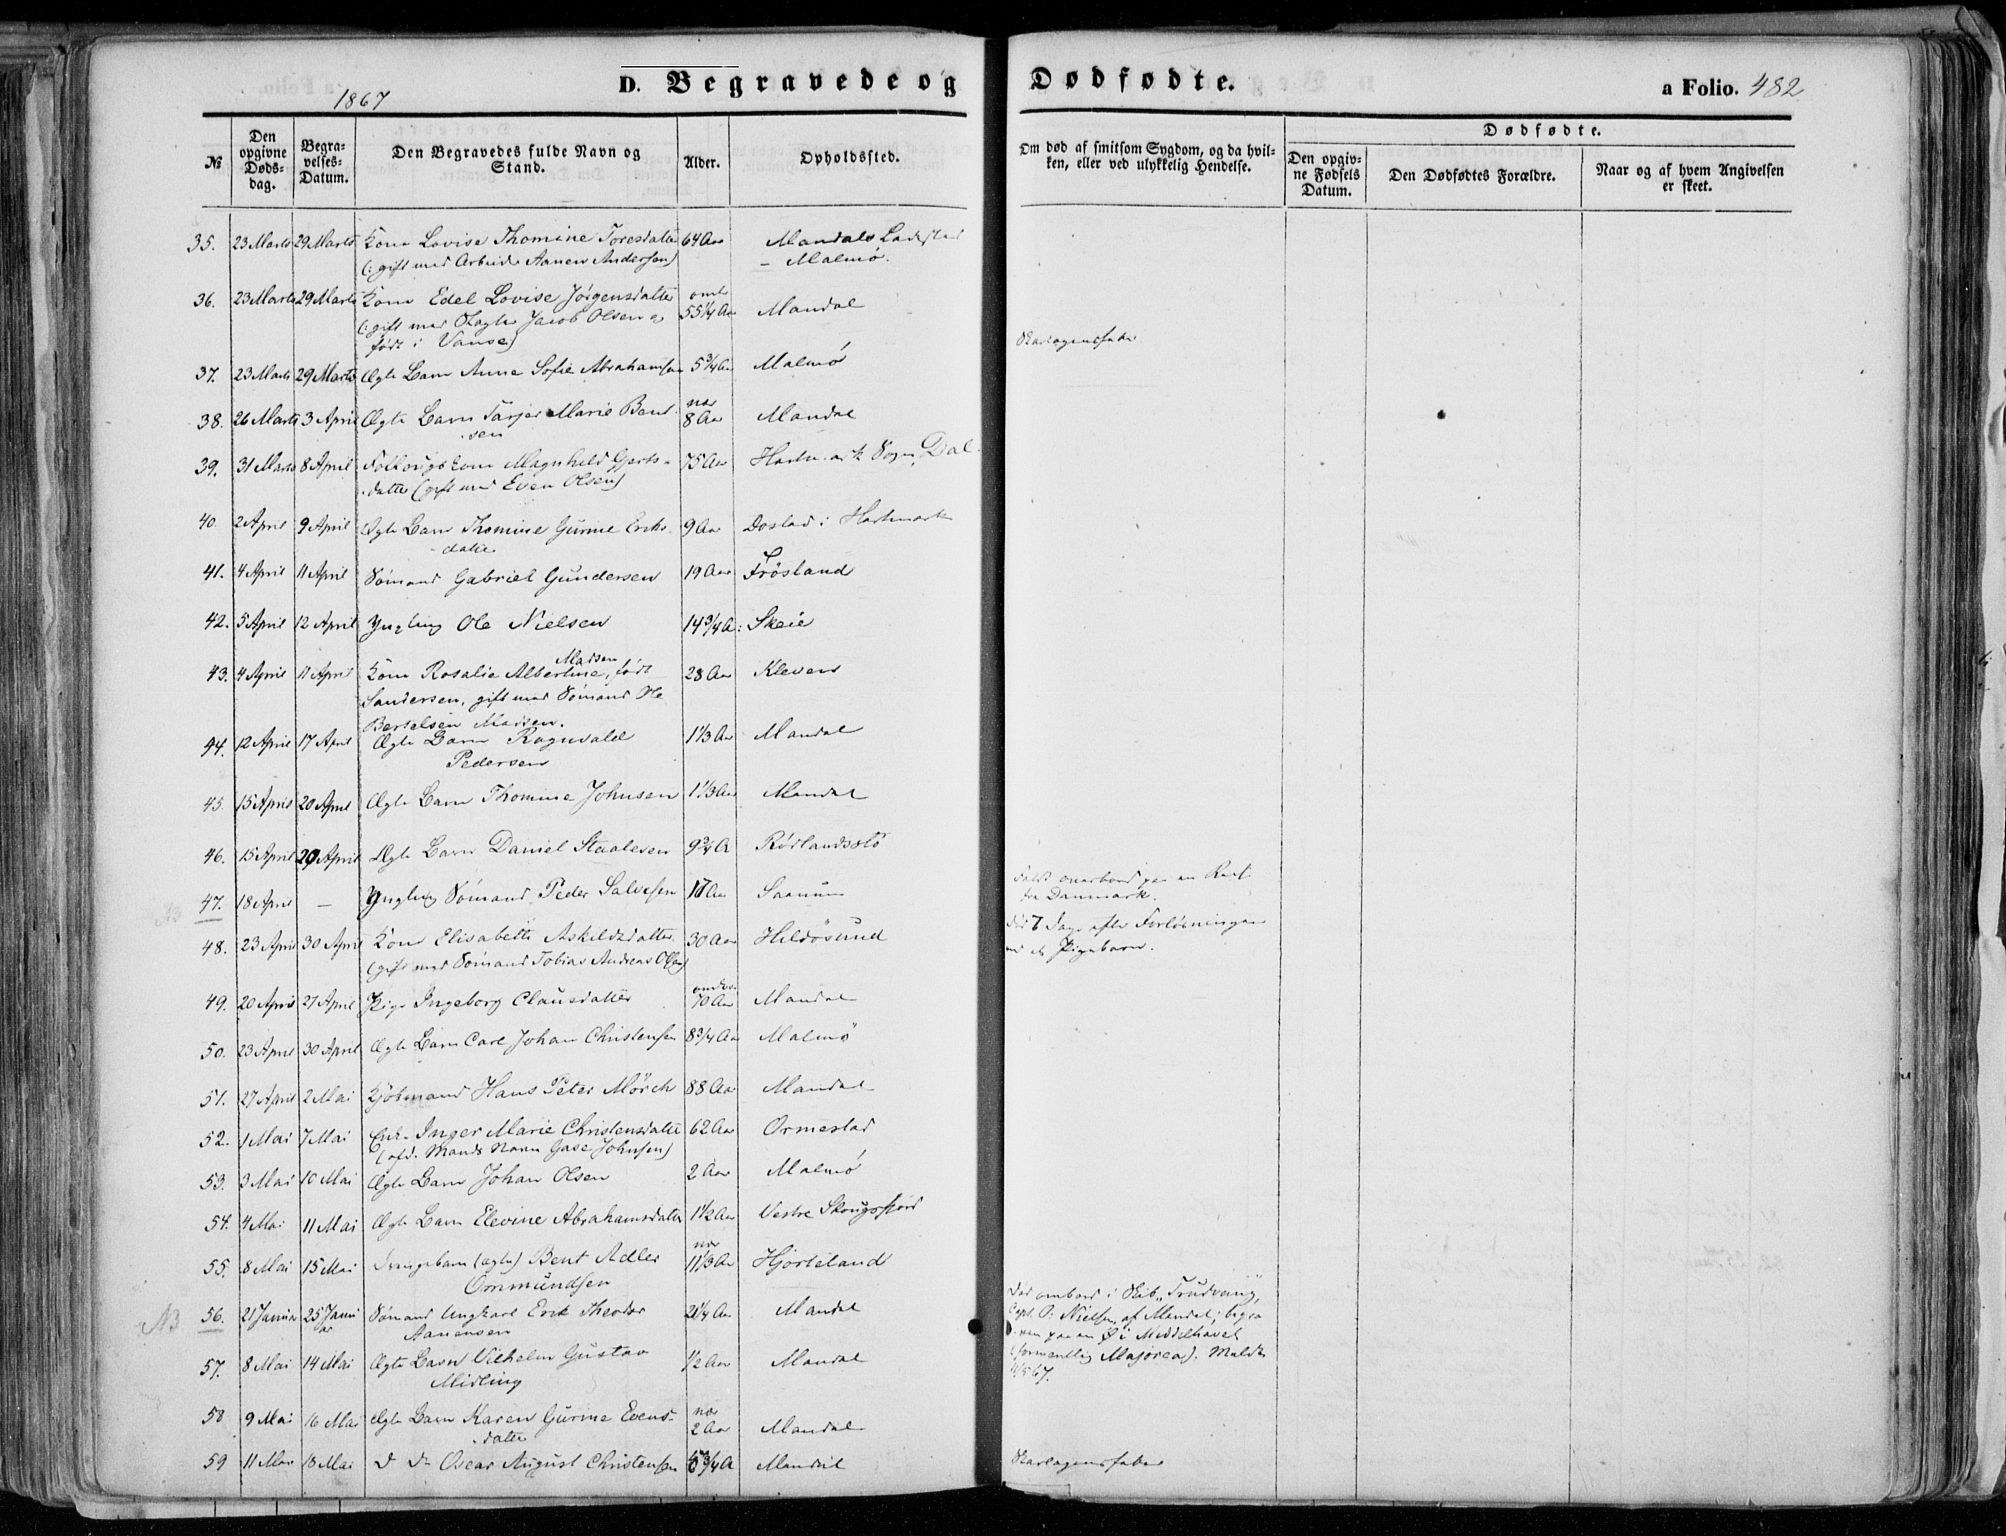 1867
D. Begravede og Dødfødte.
a Folio. 482
№
Den opgivne Døds-dag.
Begra-velses-Datum.
Den Begravedes fulde Navn og Stand.
Alder.
Opholdssted.
Om død af smitsom Sygdom, og da hvil-ken, eller ved ulykkelig Hendelse.
Dødfødte.
Den opgiv-ne Fødsels Datum.
Den Dødfødtes Forældre.
Naar og af hvem Angivelsen er skeet.
35. 23 Marts 29 Marts Kone Lovise Thomine Toresdatter 64 Aar Mandals Ladested
(: gift med Arbeider Aanen Andersen) - Malmø.
36. 23 Marts 29 Marts Kone Edel Lovise Jørgensdatter omt 55 1/4 Aar Mandal
(: gift med Jacob Olsen og
født i Vanse)
Skarlagensfeber
37. 23 Marts 29 Marts Ægte Barn Anne Sofie Abrahamsen 5 3/4 Aar Malmø
38. 26 Marts 3 April Ægte Barn Tarjer Marie Bent- nær 8 Aar Mandal
sen
39. 31 Marts 8 April Føderaadskone Magnhild Gjerts- 75 Aar Hartmark Sogn, Dal
datter (gift med Even Olsen)
40. 2 April 9 April Ægte Barn Thomine Gurine Eriks- 9 Aar i Hartmark
datter
41. 4 April 11 April Sømand Gabriel Gundersen 19 Aar Frøsland
42. 5 April 12 April Yngling Ole Nielsen 14 3/4 A: Skeie
43. 4 April 11 April Kone Rosalie Albertine Madsen, født 28 Aar Kleven
Sandersen, gift med Sømand Ole
Bertelsen Madsen.
44. 12 April 17 April Ægte Barn Ragnvald 1 1/3 Aar Mandal
Pedersen
45. 15 April 20 April Ægte Barn Thomine Johnsen 1 1/3 Aar Mandal
46. 15 April 20 April Ægte Barn Daniel Staalesen 9 3/4 A
47. 18 April — Yngling Sømand Peder Salvesen 17 Aar Saanum
Faldt overbord paa en Reise
fra Danmark.
48. 23 April 30 April Kone Elisabeth Askildsdatter 30 Aar Hildøsund
(gift med Sømand Tobias Andreas Olsen)
Død 7 Dage efter Forløsningen
med et Pigebarn.
49. 20 April 27 April Pige Ingeborg Clausdatter omkr. 70 Aar Mandal
50. 23 April 30 April Ægte Barn Carl Johan Christensen 8 3/4 Aar Malmö
51. 27 April 2 Mai Kjöbmand Hans Peter Mörch 88 Aar Mandal
52. 1 Mai 7 Mai Enke Inger Marie Christensdatter 62 Aar Ormestad
(afd. Mands Navn Gase Johnsen)
53. 3 Mai 10 Mai Ægte Barn Johan Olsen 2 Aar Malmø
54. 4 Mai 11 Mai Ægte Barn Elevine Abrahamsdatter 1 1/2 Aar Vestre Skougsfjord
55. 8 Mai 15 Mai Drengebarn (ægte) Bent Adler nær 11 1/3 Aar Hjorteland
Ommundsen
NB 56. 21 Januar 25 Januar Sømand Ungkarl Erik Theodor 21 1/4 Aar Mandal
Aanensen
Død ombord i Skib "Trudvang",
Capt. O. Nielsen, af Mandal; begra-
ven paa en Ø i Middelhavet
(formentlig Majorca). Meldt
57. 8 Mai 14 Mai Ægte Barn Vilhelm Gustav 1/2 Aar Mandal
Midling
58 9 Mai 16 Mai Ægte Barn Karen Gurine Evens- nær 2 Aar Mandal
datter
59 11 Mai 18 Mai D Do Oscar August Christensen 5 3/4 A Mandal
Skarlagensfeber